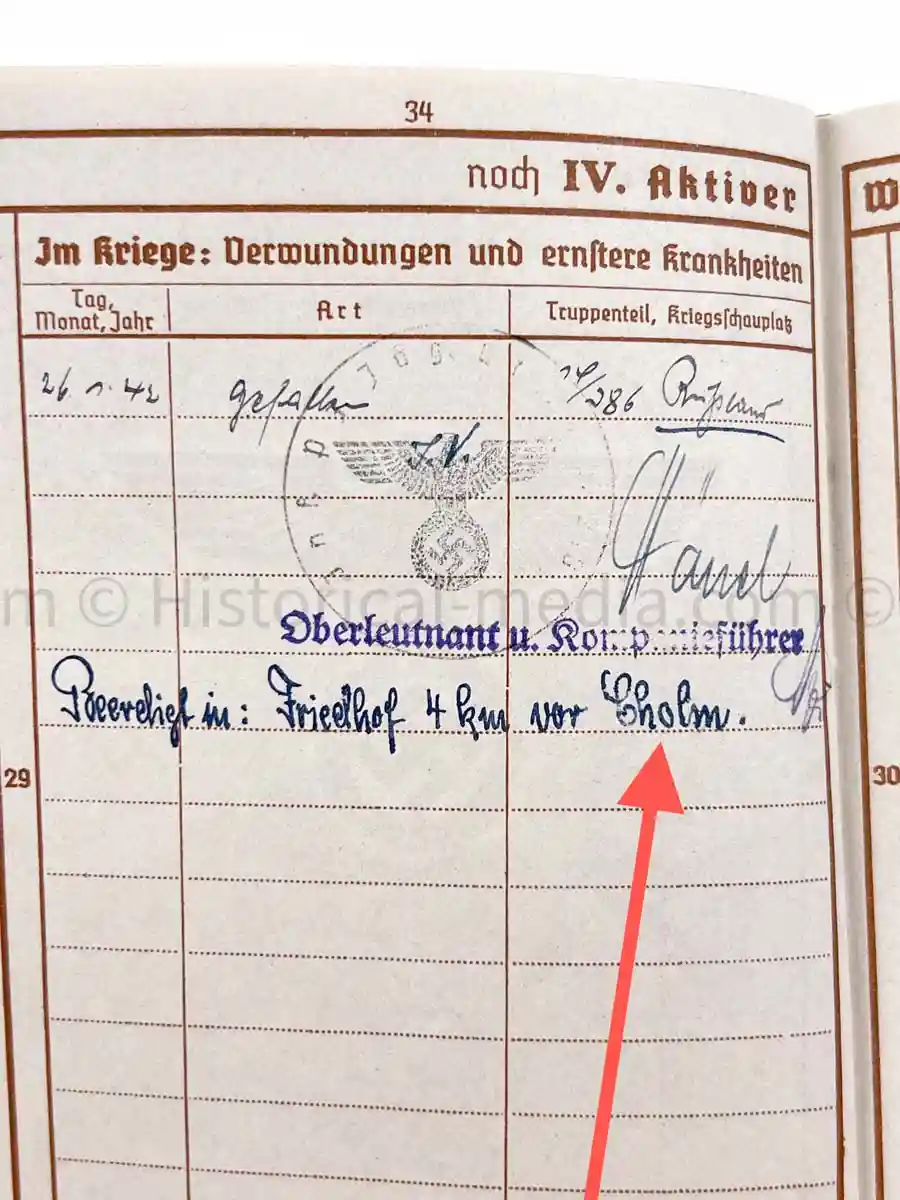 34
noch IV. Aktiver
W
Im Kriege: Verwundungen und ernstere Krankheiten
Tag, Monat, Jahr
Art
Truppenteil, Kriegsschauplatz
26. 1. 42 gefallen 14/386 Rußland
Oberleutnant u. Kompanieführer
m © Historical-media.com ©
Beerdigt in: Friedhof 4 km vor Cholm.
29
30